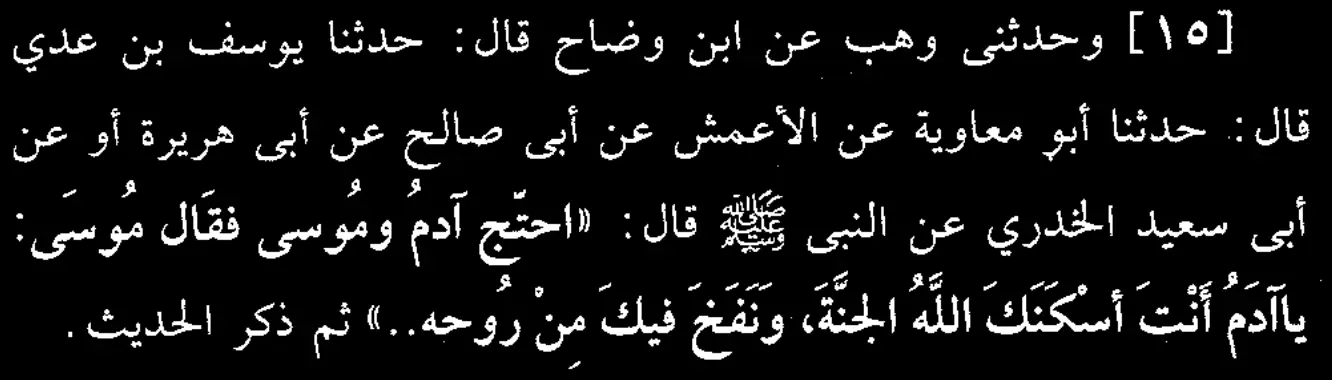 [١٥] وحدثنى وهب عن ابن وضاح قال: حدثنا يوسف بن عدي
قال: حدثنا أبو معاوية عن الأعمش عن أبى صالح عن أبى هريرة أو عن
أبى سعيد الخدري عن النبى ﷺ قال: «احتّج آدمُ ومُوسى فقَال مُوسَى:
ياآدَمُ أَنْتَ أسْكَنَكَ اللَّهُ الجنَّةَ، ونَفَخَ فيكَ مِنْ رُوحه..» ثم ذكر الحديث.